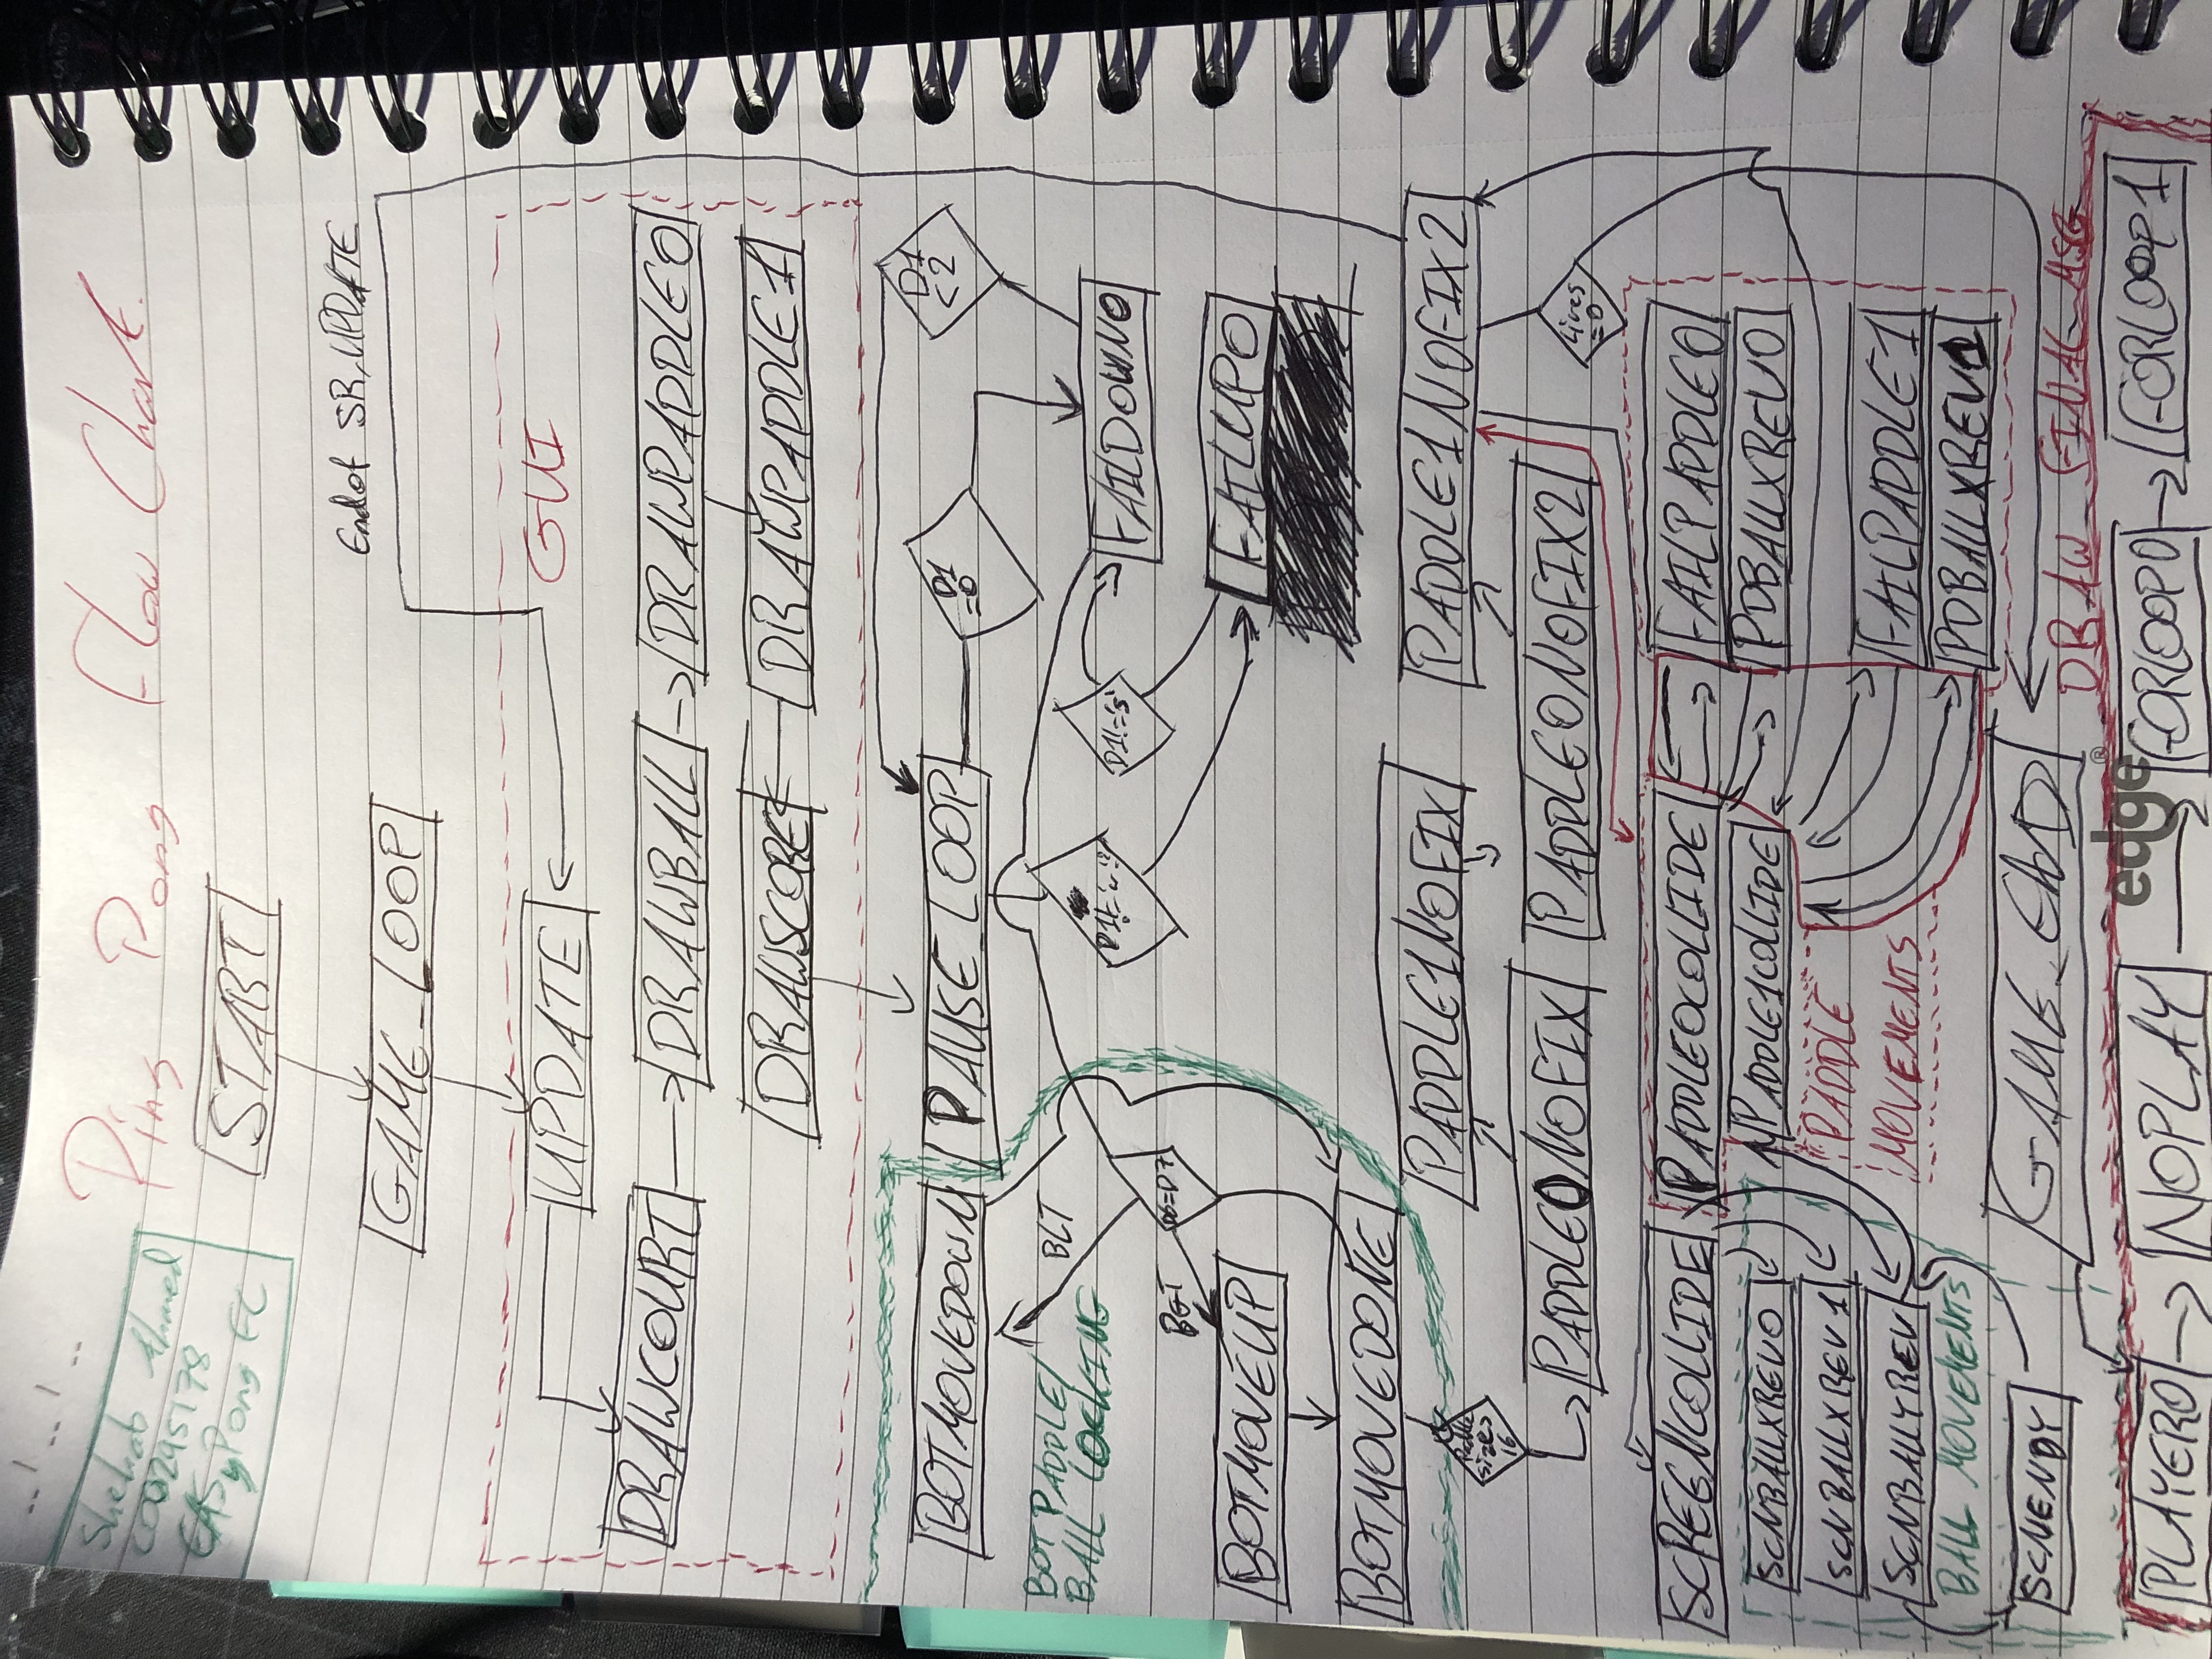 Ping Pong Flow Chart.
Shehab Ahmed
C00295178
EASyPong FC
START
End of SR, UPDATE
GAME_LOOP
GUI
UPDATE
DRAWCOURT
DRAWBALL
DRAWPADDLE0
DRAWSCORE
DRAWPADDLE1
BOTMOVEDOWN
PAUSE_LOOP
D1
=0
D1
<2
BOT PADDLE/
BALL LOCKING
BLT
D1!='w'?
D1!='s'
FAILDOWN0
BGT
D6=D7
BOTMOVEUP
FAILUP0
BOTMOVEDONE
PADDLE1NOFIX
PADDLE1NOFIX2
Paddle
sizes
16
PADDLE0NOFIX
PADDLE0NOFIX2
Lives
=0
SCREENCOLLIDE
PADDLE0COLLIDE
FAILPADDLE0
SCNBALLXREV0
PADDLE1COLLIDE
PDBALLXREV0
SCNBALLXREV1
PADDLE
MOVEMENTS
SCNBALLYREV
FAILPADDLE1
BALL MOVEMENTS
PDBALLXREV1
SCNENDY
GAME_END
DRAW_FINAL_MSG
edge®
PLAYER0
NOPLAY
FORLOOP0
FORLOOP1